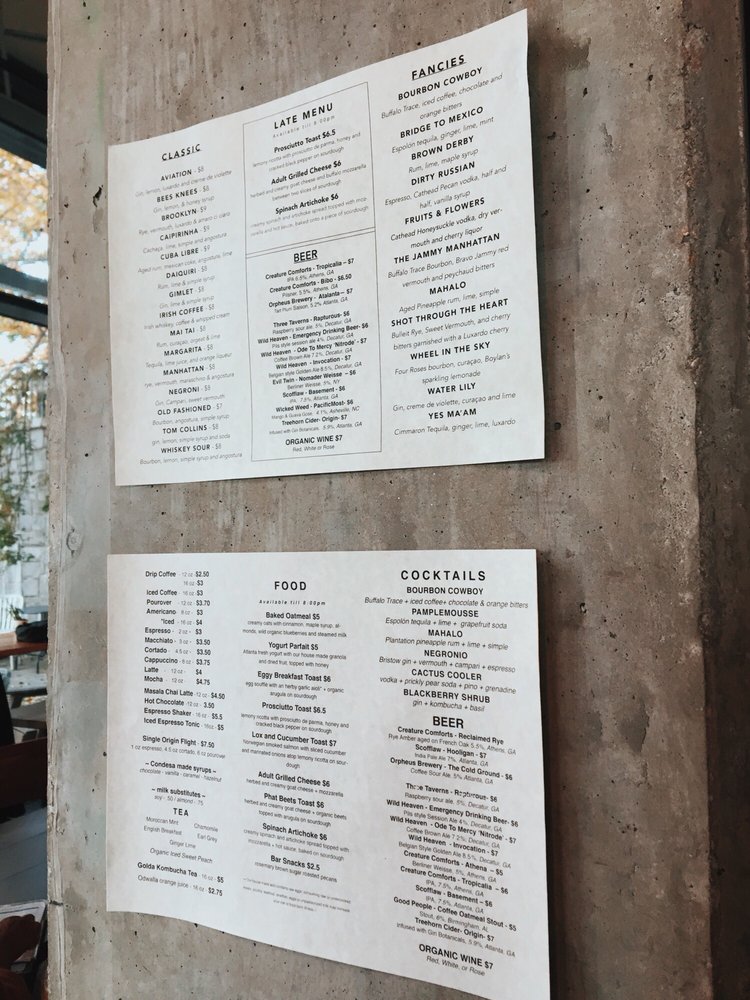 CLASSIC
AVIATION - $8
Gin, lemon, luxardo and creme de violette
BEES KNEES - $8
Gin, lemon, & honey syrup
BROOKLYN - $9
Rye, vermouth, luxardo & amaro ci ciaro
CAIPIRINHA - $9
Cachaça, lime, simple and angostura
CUBA LIBRE - $9
Aged rum, mexican coke, angostura, lime
DAIQUIRI - $8
Rum, lime & simple syrup
GIMLET - $8
Gin, lime & simple syrup
IRISH COFFEE - $8
Irish whiskey, coffee & whipped cream
MAI TAI - $8
Rum, curaçao, orgeat & lime
MARGARITA - $8
Tequila, lime juice, and orange liqueur
MANHATTAN - $8
rye, vermouth, maraschino & angostura
NEGRONI - $8
Gin, Campari, sweet vermouth
OLD FASHIONED - $7
Bourbon, angostura, simple syrup
TOM COLLINS - $8
gin, lemon, simple syrup and soda
WHISKEY SOUR - $8
Bourbon, lemon, simple syrup and angostura
LATE MENU
available till 8:00pm
Prosciutto Toast $6.5
lemony ricotta with prosciutto de parma, honey and
cracked black pepper on sourdough
Adult Grilled Cheese $6
herbed and creamy goat cheese and buffalo mozzarella
between two slices of sourdough
Spinach Artichoke $6
creamy spinach and artichoke spread topped with moz-
zarella and hot sauce, baked onto a piece of sourdough
BEER
Creature Comforts - Tropicalia - $7
IPA 6.5%, Athens, GA
Creature Comforts - Bibo - $6.50
Pilsner, 5.5%, Athens, GA
Orpheus Brewery - Atalanta - $7
Tart Plum Saison, 5.2% Atlanta, GA
Three Taverns - Rapturous- $6
Raspberry sour ale 5%, Decatur, GA
Wild Heaven - Emergency Drinking Beer- $6
Pils style session ale 4%, Decatur, GA
Wild Heaven - Ode To Mercy 'Nitrode' - $7
Coffee Brown Ale 7.2%, Decatur, GA
Wild Heaven - Invocation - $7
Belgian style Golden Ale 8.5%, Decatur, GA
Evil Twin - Nomader Weisse - $6
Berliner Weisse, 5%, NY
Scofflaw - Basement - $6
IPA, 7.5%, Atlanta, GA
Wicked Weed - PacificMost- $6
Mango & Guava Gose, 4.1%, Asheville, NC
Treehorn Cider- Origin- $7
Infused with Gin Botanicals, 5.9%, Atlanta, GA
ORGANIC WINE $7
Red, White or Rose
FANCIES
BOURBON COWBOY
Buffalo Trace, iced coffee, chocolate and
orange bitters
BRIDGE TO MEXICO
Espolón tequila, ginger, lime, mint
BROWN DERBY
Rum, lime, maple syrup
DIRTY RUSSIAN
Espresso, Cathead Pecan vodka, half and
half, vanilla syrup
FRUITS & FLOWERS
Cathead Honeysuckle vodka, dry ver-
mouth and cherry liquor
THE JAMMY MANHATTAN
Buffalo Trace Bourbon, Bravo Jammy red
vermouth and peychaud bitters
MAHALO
Aged Pineapple rum, lime, simple
SHOT THROUGH THE HEART
Bulleit Rye, Sweet Vermouth, and cherry
bitters garnished with a Luxardo cherry
WHEEL IN THE SKY
Four Roses bourbon, curaçao, Boylan's
sparkling lemonade
WATER LILY
Gin, creme de violette, curaçao and lime
YES MA'AM
Cimmaron Tequila, ginger, lime, luxardo
Drip Coffee - 12 oz $2.50
16 oz $3
Iced Coffee - 16 oz $3
Pourover - 12 oz $3.70
Americano 8 oz - $3
*Iced - 16 oz $4
Espresso - 2 oz - $3
Macchiato - 3 oz - $3.50
Cortado - 4.5 oz - $3.50
Cappuccino - 8 oz - $3.75
Latte - 12 oz - $4
Mocha - 12 oz - $4.75
Masala Chai Latte -12 oz- $4.50
Hot Chocolate -12 oz- 3.50
Espresso Shaker - 16 oz- $5.5
Iced Espresso Tonic -16 oz- $5
Single Origin Flight - $7.50
1 oz espresso, 4.5 oz cortado, 6 oz pourover
~ Condesa made syrups ~
chocolate - vanilla - caramel - hazelnut
~ milk substitutes ~
soy .50 / almond .75
TEA
Moroccan Mint Chamomile
English Breakfast Earl Grey
Ginger Lime
Organic Iced Sweet Peach
Golda Kombucha Tea - 16 oz - $5
Odwalla orange juice - 16 oz - $2.75
FOOD
Available till 8:00pm
Baked Oatmeal $5
creamy oats with cinnamon, maple syrup, al-
monds, wild organic blueberries and steamed milk
Yogurt Parfait $5
Atlanta fresh yogurt with our house made granola
and dried fruit, topped with honey
Eggy Breakfast Toast $6
egg soufflé with an herby garlic aioli* + organic
arugula on sourdough
Prosciutto Toast $6.5
lemony ricotta with prosciutto de parma, honey and
cracked black pepper on sourdough
Lox and Cucumber Toast $7
Norwegian smoked salmon with sliced cucumber
and marinated onions atop lemony ricotta on sour-
dough
Adult Grilled Cheese $6
herbed and creamy goat cheese + mozzarella
Phat Beets Toast $6
herbed and creamy goat cheese + organic beets
topped with arugula on sourdough
Spinach Artichoke $6
creamy spinach and artichoke spread topped with
mozzarella + hot sauce, baked on sourdough
Bar Snacks $2.5
rosemary brown sugar roasted pecans
COCKTAILS
BOURBON COWBOY
Buffalo Trace + iced coffee+ chocolate & orange bitters
PAMPLEMOUSSE
Espolón tequila + lime + grapefruit soda
MAHALO
Plantation pineapple rum + lime + simple
NEGRONIO
Bristow gin + vermouth + campari + espresso
CACTUS COOLER
vodka + prickly pear soda + pino + grenadine
BLACKBERRY SHRUB
gin + kombucha + basil
BEER
Creature Comforts - Reclaimed Rye
Rye Amber aged on French Oak 5.5%, Athens, GA
Scofflaw - Hooligan - $7
India Pale Ale 7%, Atlanta, GA
Orpheus Brewery - The Cold Ground - $6
Coffee Sour Ale, 5% Atlanta, GA
Three Taverns - Rapturous- $6
Raspberry sour ale, 5%, Decatur, GA
Wild Heaven - Emergency Drinking Beer- $6
Pils style Session Ale 4%, Decatur, GA
Wild Heaven - Ode To Mercy 'Nitrode' - $7
Coffee Brown Ale 7.2%, Decatur, GA
Wild Heaven - Invocation - $7
Belgian Style Golden Ale 8.5%, Decatur, GA
Creature Comforts - Athena - $5
Berliner Weisse, 5%, Athens, GA
Creature Comforts - Tropicalia - $6
IPA, 7.5%, Athens, GA
Scofflaw - Basement - $6
IPA, 7.5%, Atlanta, GA
Good People - Coffee Oatmeal Stout - $5
Stout, 6%, Birmingham, AL
Treehorn Cider- Origin- $7
Infused with Gin Botanicals, 5.9%, Atlanta, GA
ORGANIC WINE $7
Red, White, or Rose